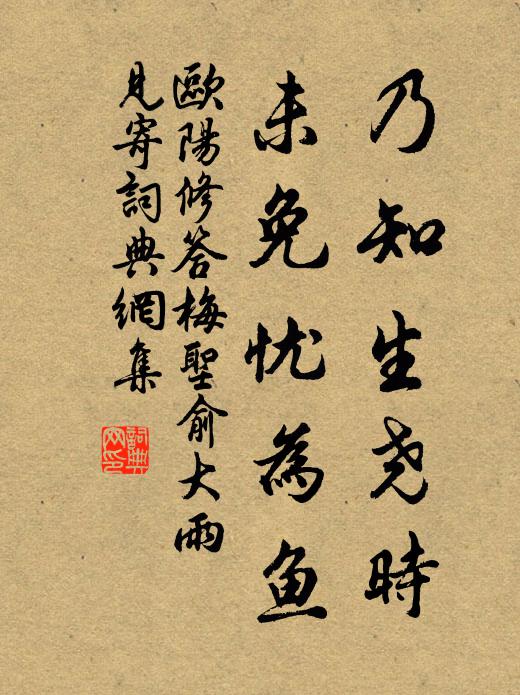 乃知生尧時
未免忧為鱼
歐陽修答梅聖俞大雨
見寄詞典網集
詞典網印